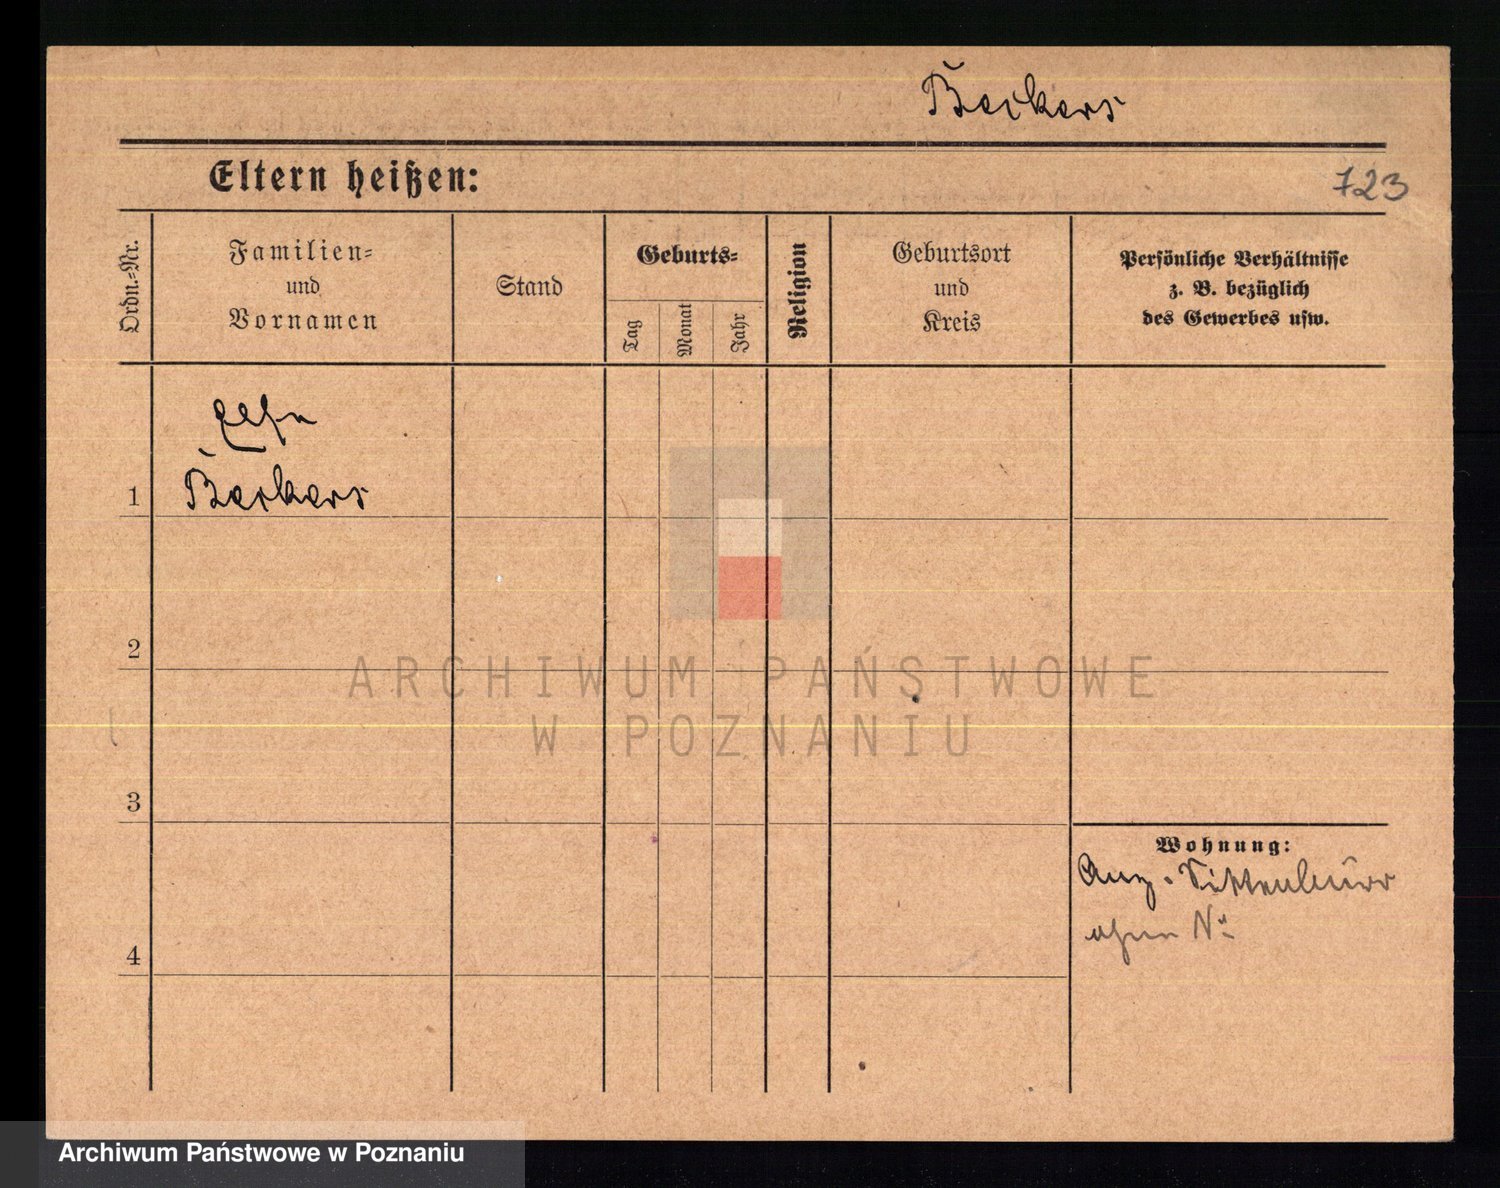 Beckers
Eltern heißen:
723
Ordn.-Nr.
Familien-
und
Vornamen
Stand
Geburts-
Tag
Monat
Jahr
Religion
Geburtsort
und
Kreis
Persönliche Verhältnisse
z. B. bezüglich
des Gewerbes usw.
1
Beckers
2
3
4
Wohnung:
ohne No
ARCHIWUM PAŃSTWOWE
W POZNANIU
Archiwum Państwowe w Poznaniu